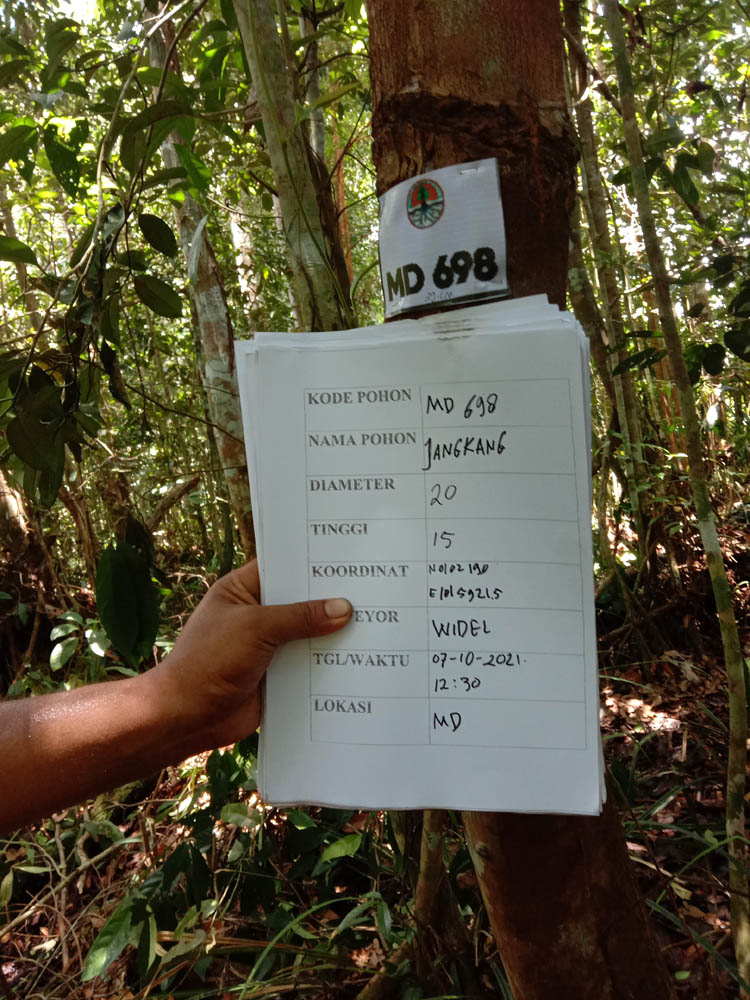 MD 698
KODE POHON MD 698
NAMA POHON JANGKANG
DIAMETER 20
TINGGI 15
KOORDINAT N0102190
E10159215
EYOR WIDEL
TGL/WAKTU 07-10-2021.
12:30
LOKASI MD